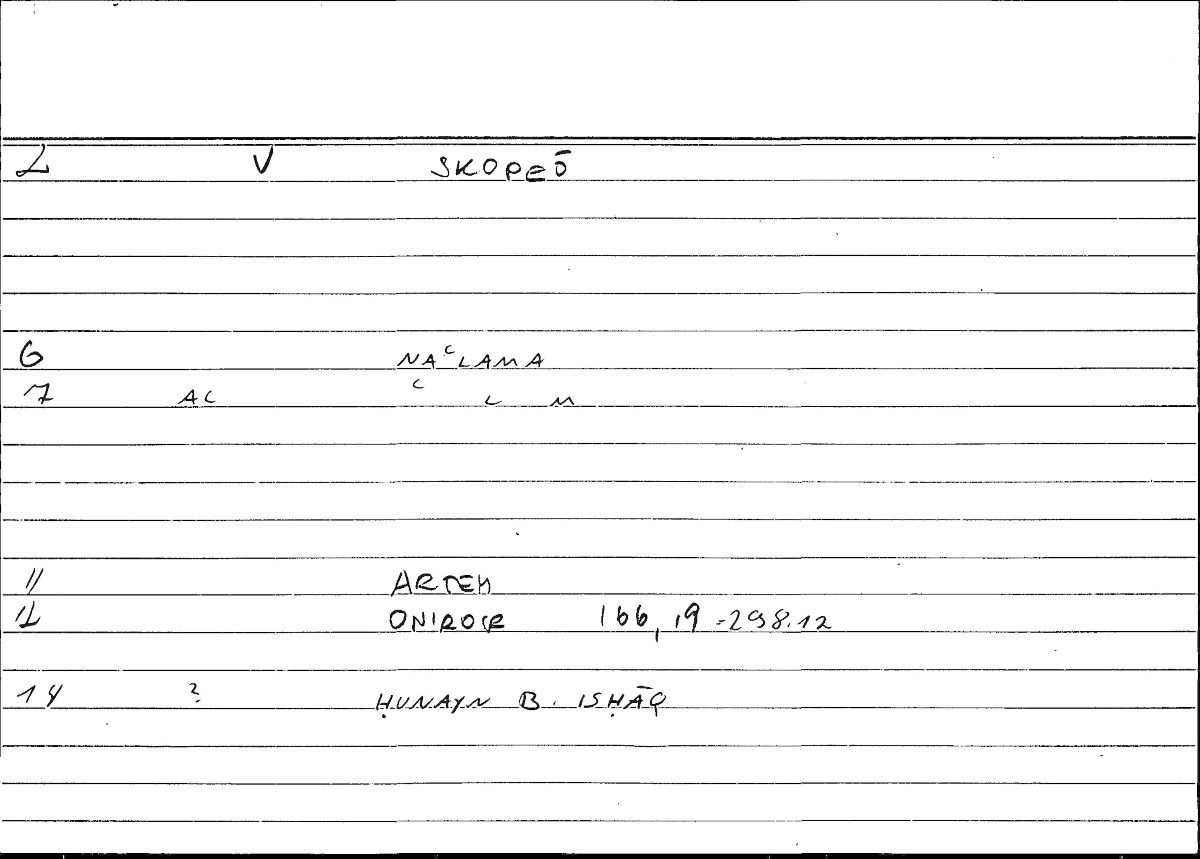 2 V SKOPEŌ
6 NAʿLAMA
7 AC ʿ L M
11 ARTEM
12 ONIROCR 166,19-298.12
14 ? ḤUNAYN B. ISḤĀQ